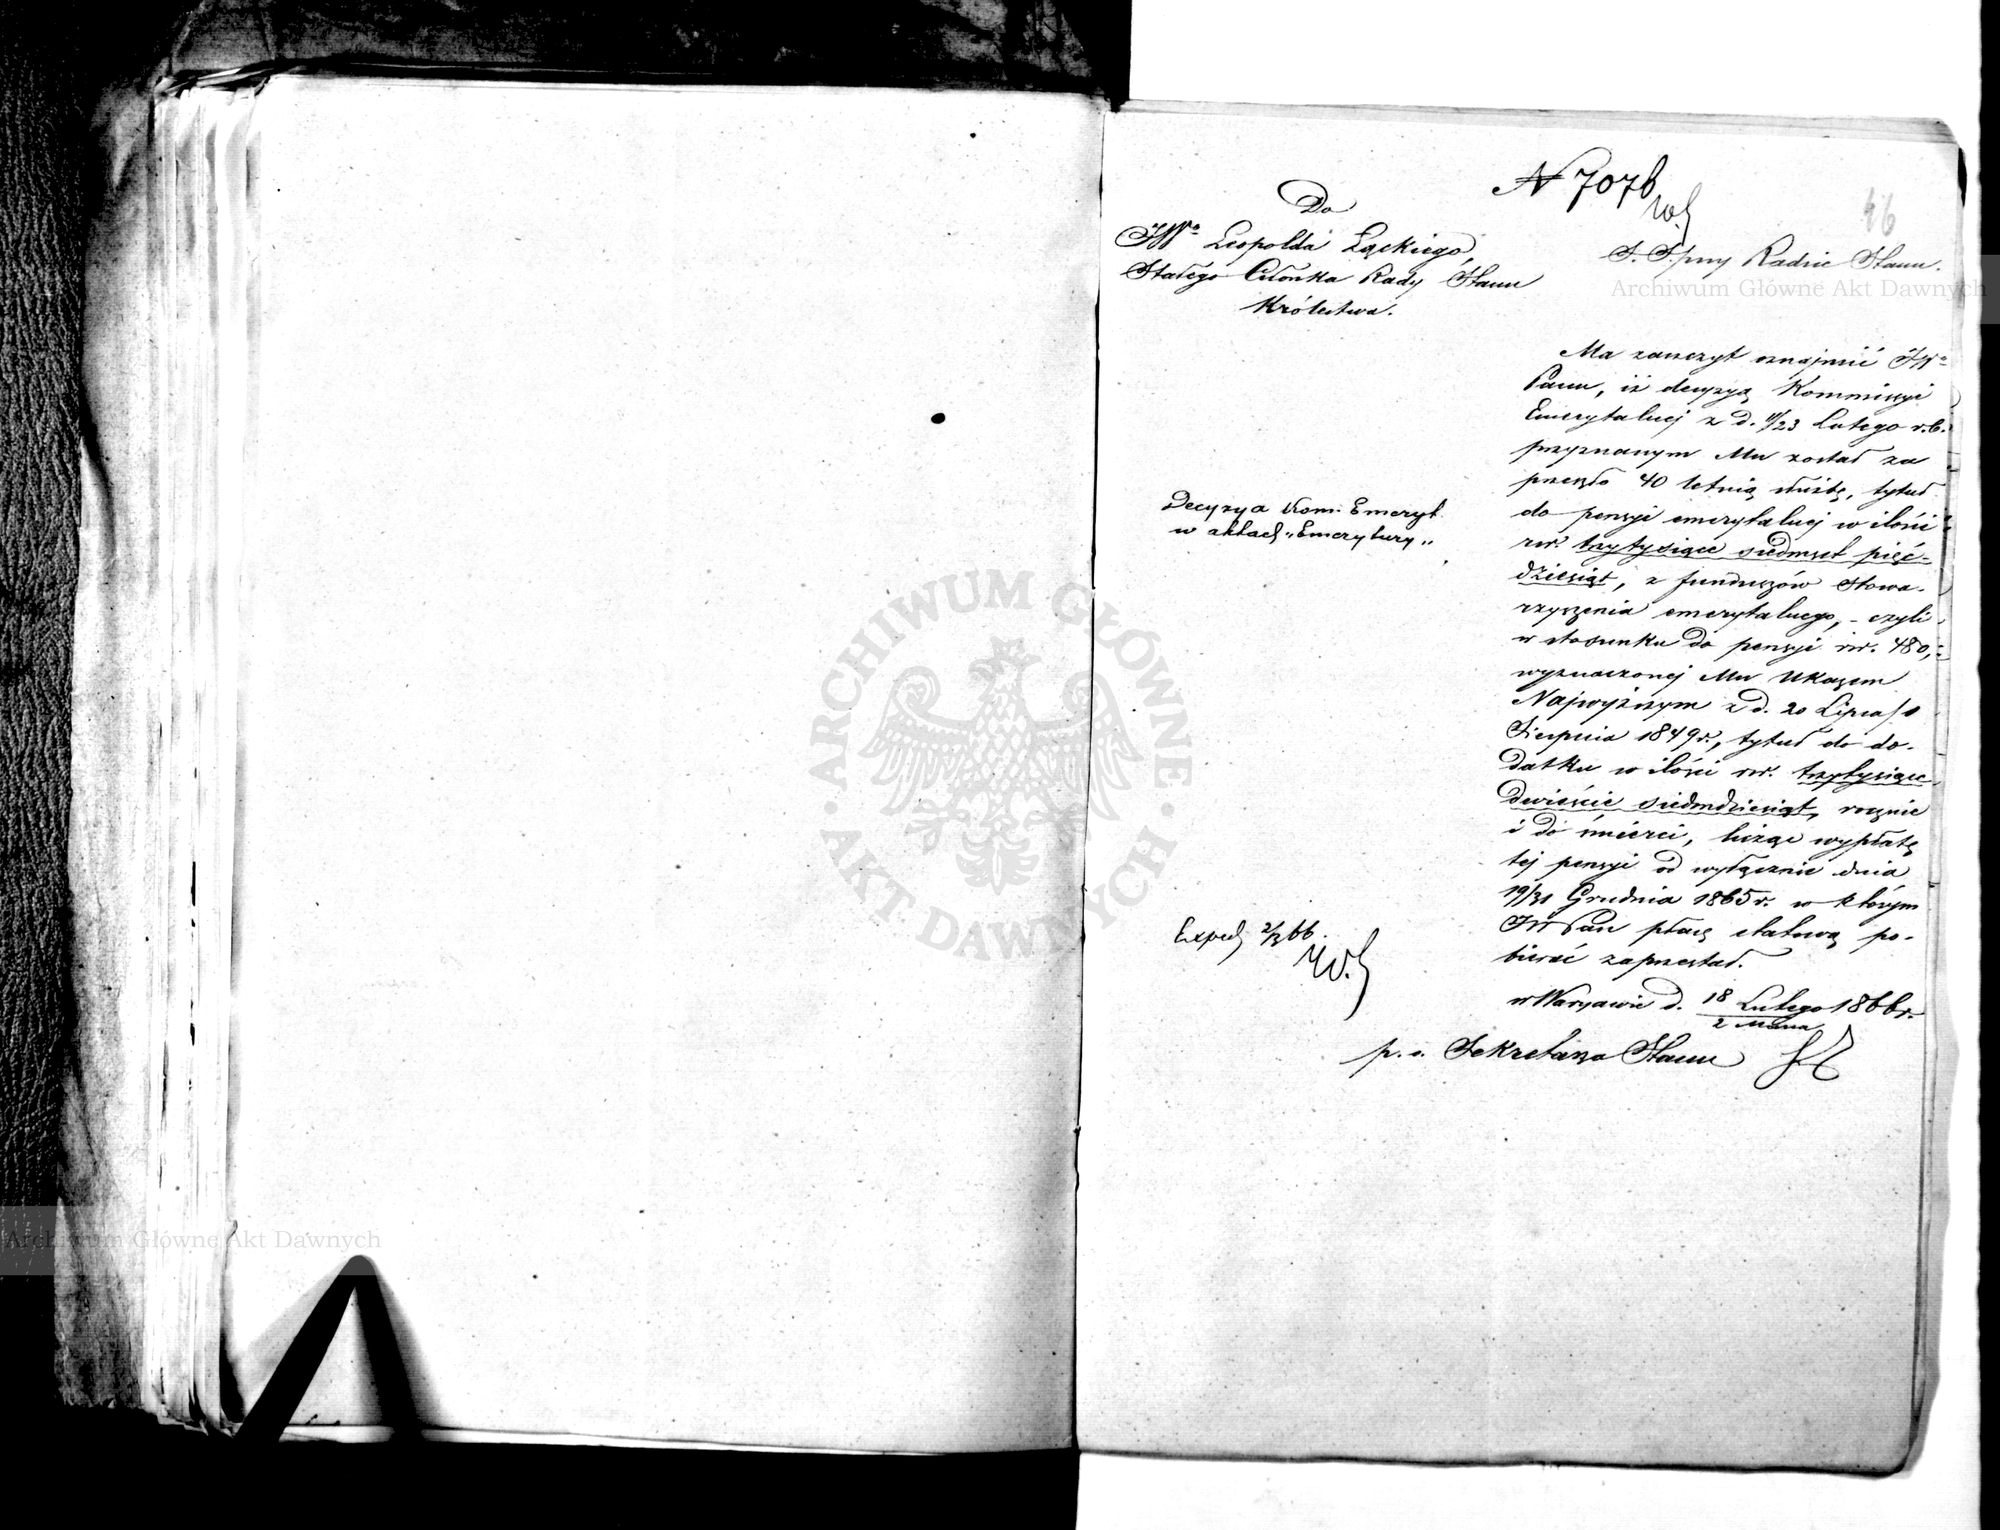 N 7076
46
Do
JWo Leopolda Łąckiego,
Stałego Członka Rady Stanu
Królestwa.
S. S. przy Radzie Stanu.
Archiwum Główne Akt Dawnych
Ma zaszczyt oznajmić JWu
Panu, iż decyzyą Kommissyi
Emerytalnej z d. 11/23 Lutego r.b.
przyznanym Mu został za
przeszło 40 letnią służbę, tytuł
do pensyi emerytalnej w ilości
rsr. trzytysiące siedmset pięć-
dziesiąt, z funduszów Stowa-
rzyszenia emerytalnego, - czyli
w stosunku do pensyi rsr. 480,
wyznaczonej Mu Ukazem
Najwyższym z d. 20 Lipca/1
Sierpnia 1849 r., tytuł do do-
datku w ilości rsr. trzytysiące
dwieście siedmdziesiąt, rocznie
i do śmierci, licząc wypłatę
tej pensyi od wyłącznie dnia
19/31 Grudnia 1865 r. w którym
JW Pan płacę etatową po-
bierać zaprzestał.
Decyzya Kom: Emeryt.
w aktach „Emerytury„
Exped. 2/3 66.
w Warszawie d. 18 Lutego 1866 r.
2 Marca
p. o. Sekretarza Stanu
ARCHIWUM GŁÓWNE
AKT DAWNYCH
Archiwum Główne Akt Dawnych